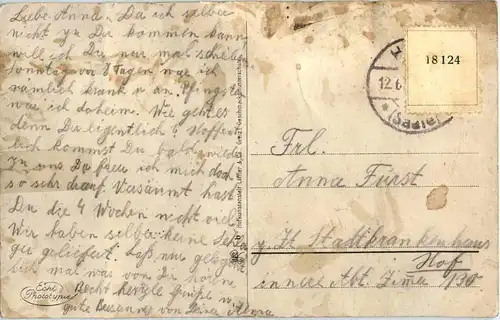 Liebe Anna! Da ich selber
nicht zu Dir kommen kann
will ich Dir nur mal schreiben
Sonntag vor 8 Tagen war ich
nämlich krank u. an Pfingsten
war ich daheim. Wie geht es
denn Dir eigentlich? Hoffent-
lich kommst Du bald wieder
zu uns Du freu ich mich doch
so sehr drauf. Versäumt hast
Du die 4 Wochen nicht viel
Wir haben selber keine
geliefert. Laß nur
mal was von Dir hören
Recht herzl. Grüße u.
gute Besserung von Deiner Anna
Echt
Photograph
18124
12.6
Frl.
Anna Fürst
z. Zt. Stadtkrankenhaus
Hof
innere Abt. Zimmer 130